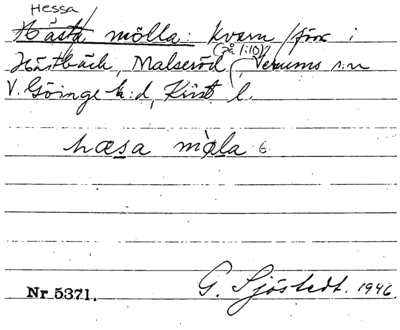 Hessa
Hästa mölla: Kvarn förr i
(på 1:10)
Hästbäck, Malseröd, Verums sn
V. Göinge h:d, Krist l.
hæsa mọ̀la 6
Nr 5371. G. Sjöstedt. 1946.